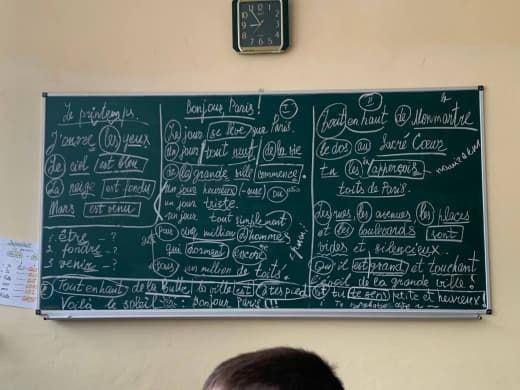 Le printemps.
J'ouvre les yeux
Le ciel est bleu
La neige est fondu
Mars est venu
1. être - ?
2 fondre - ?
3 venir - ?
Bonjour Paris!
I
Un jour se lève sur Paris.
Un jour tout neuf de la vie
de la grande ville commence.
Un jour heureux - ou
un jour triste.
un jour tout simplement
pour cinq million d'hommes
qui dorment encore
sous un million de toits.
II
Tout en haut de Monmartre
le dos au Sacré Coeur
tu apperçois
toits de Paris.
des rues, les avenues, les places
et les boulevards sont
vides et silencieux.
Qu'il est grand et touchant
de la grande ville!
Et tu te sens petite et heureux!
Tout en haut de la Butte, la ville est à tes pied
Voilà le soleil : Bonjour Paris!!!